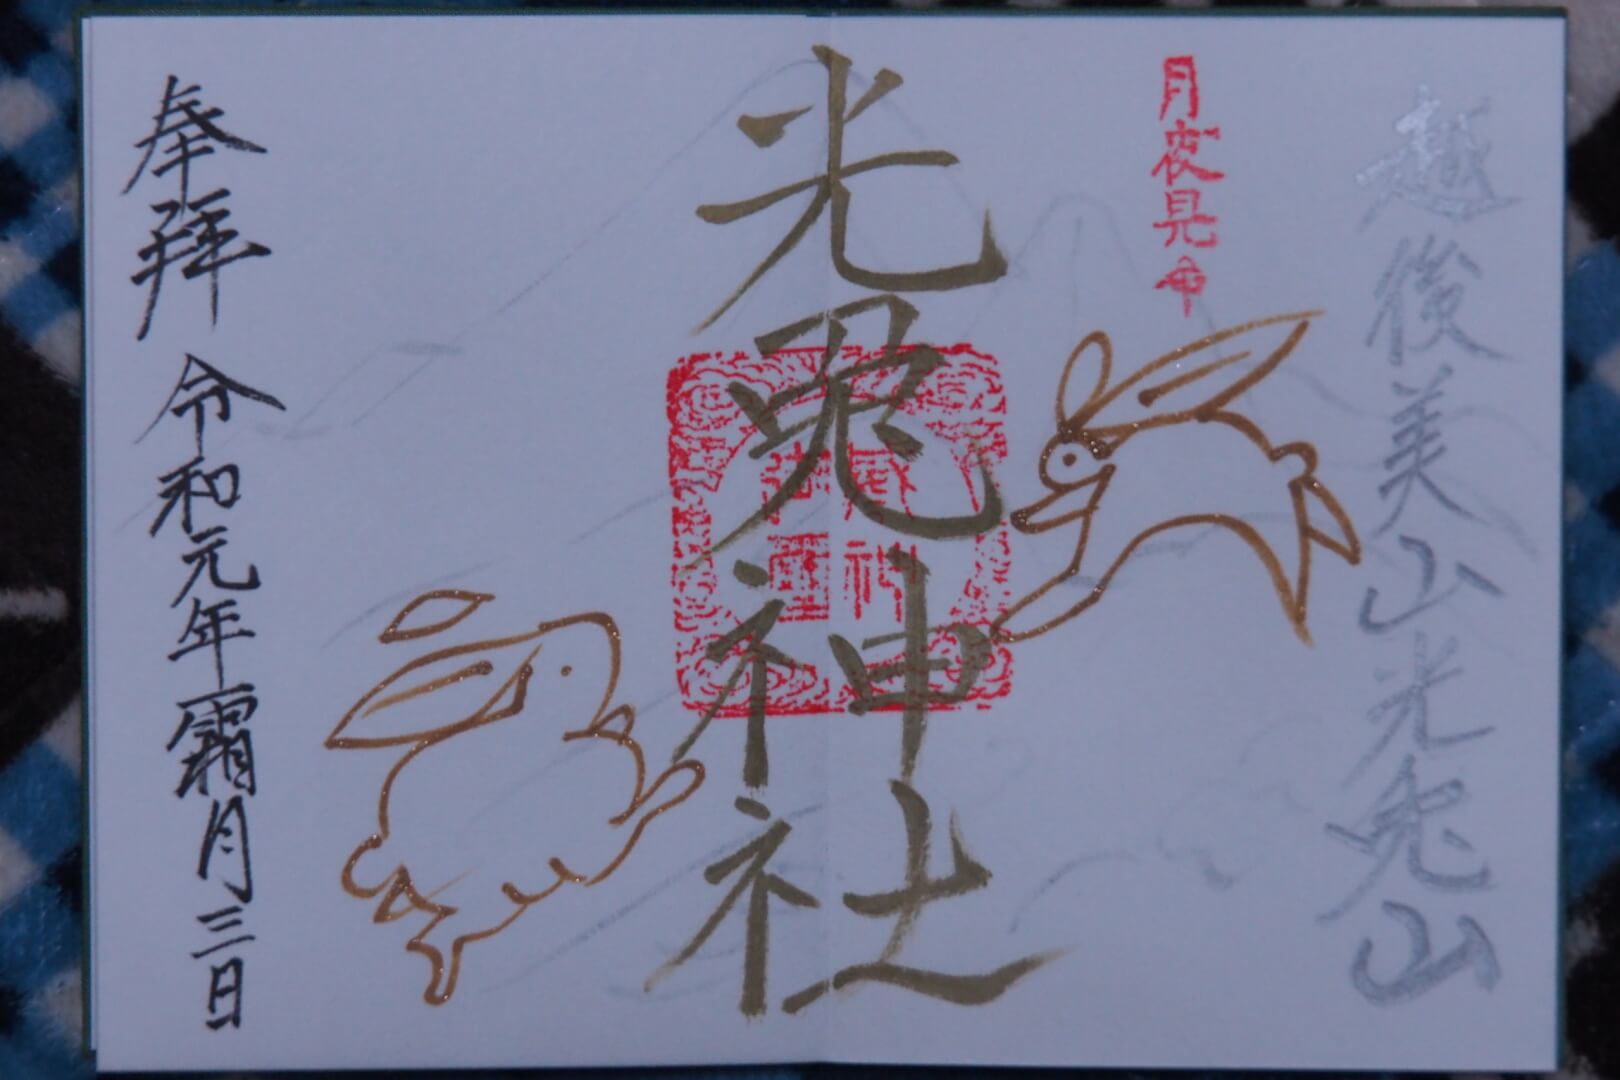 越後美山光兎山
月夜見命
光兎神社
奉拜
令和元年霜月三日